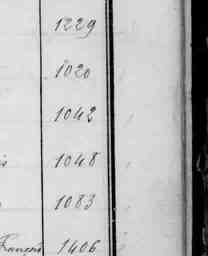 1229
1020
1042
is 1048
1083
François 1406